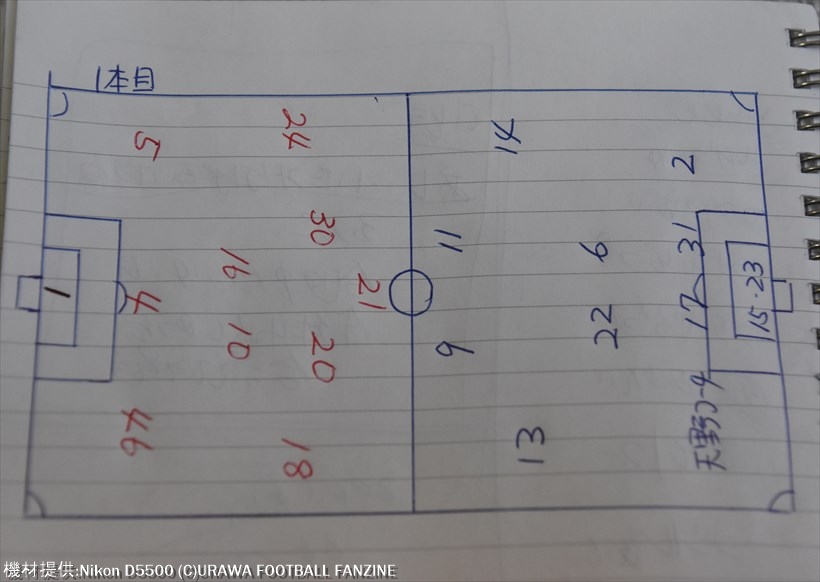 1本目
5
24
14
2
30
11
6
31
16
21
1
4
22
17
15・23
10
20
9
46
18
13
天野コーチ
機材提供:Nikon D5500 (C)URAWA FOOTBALL FANZINE